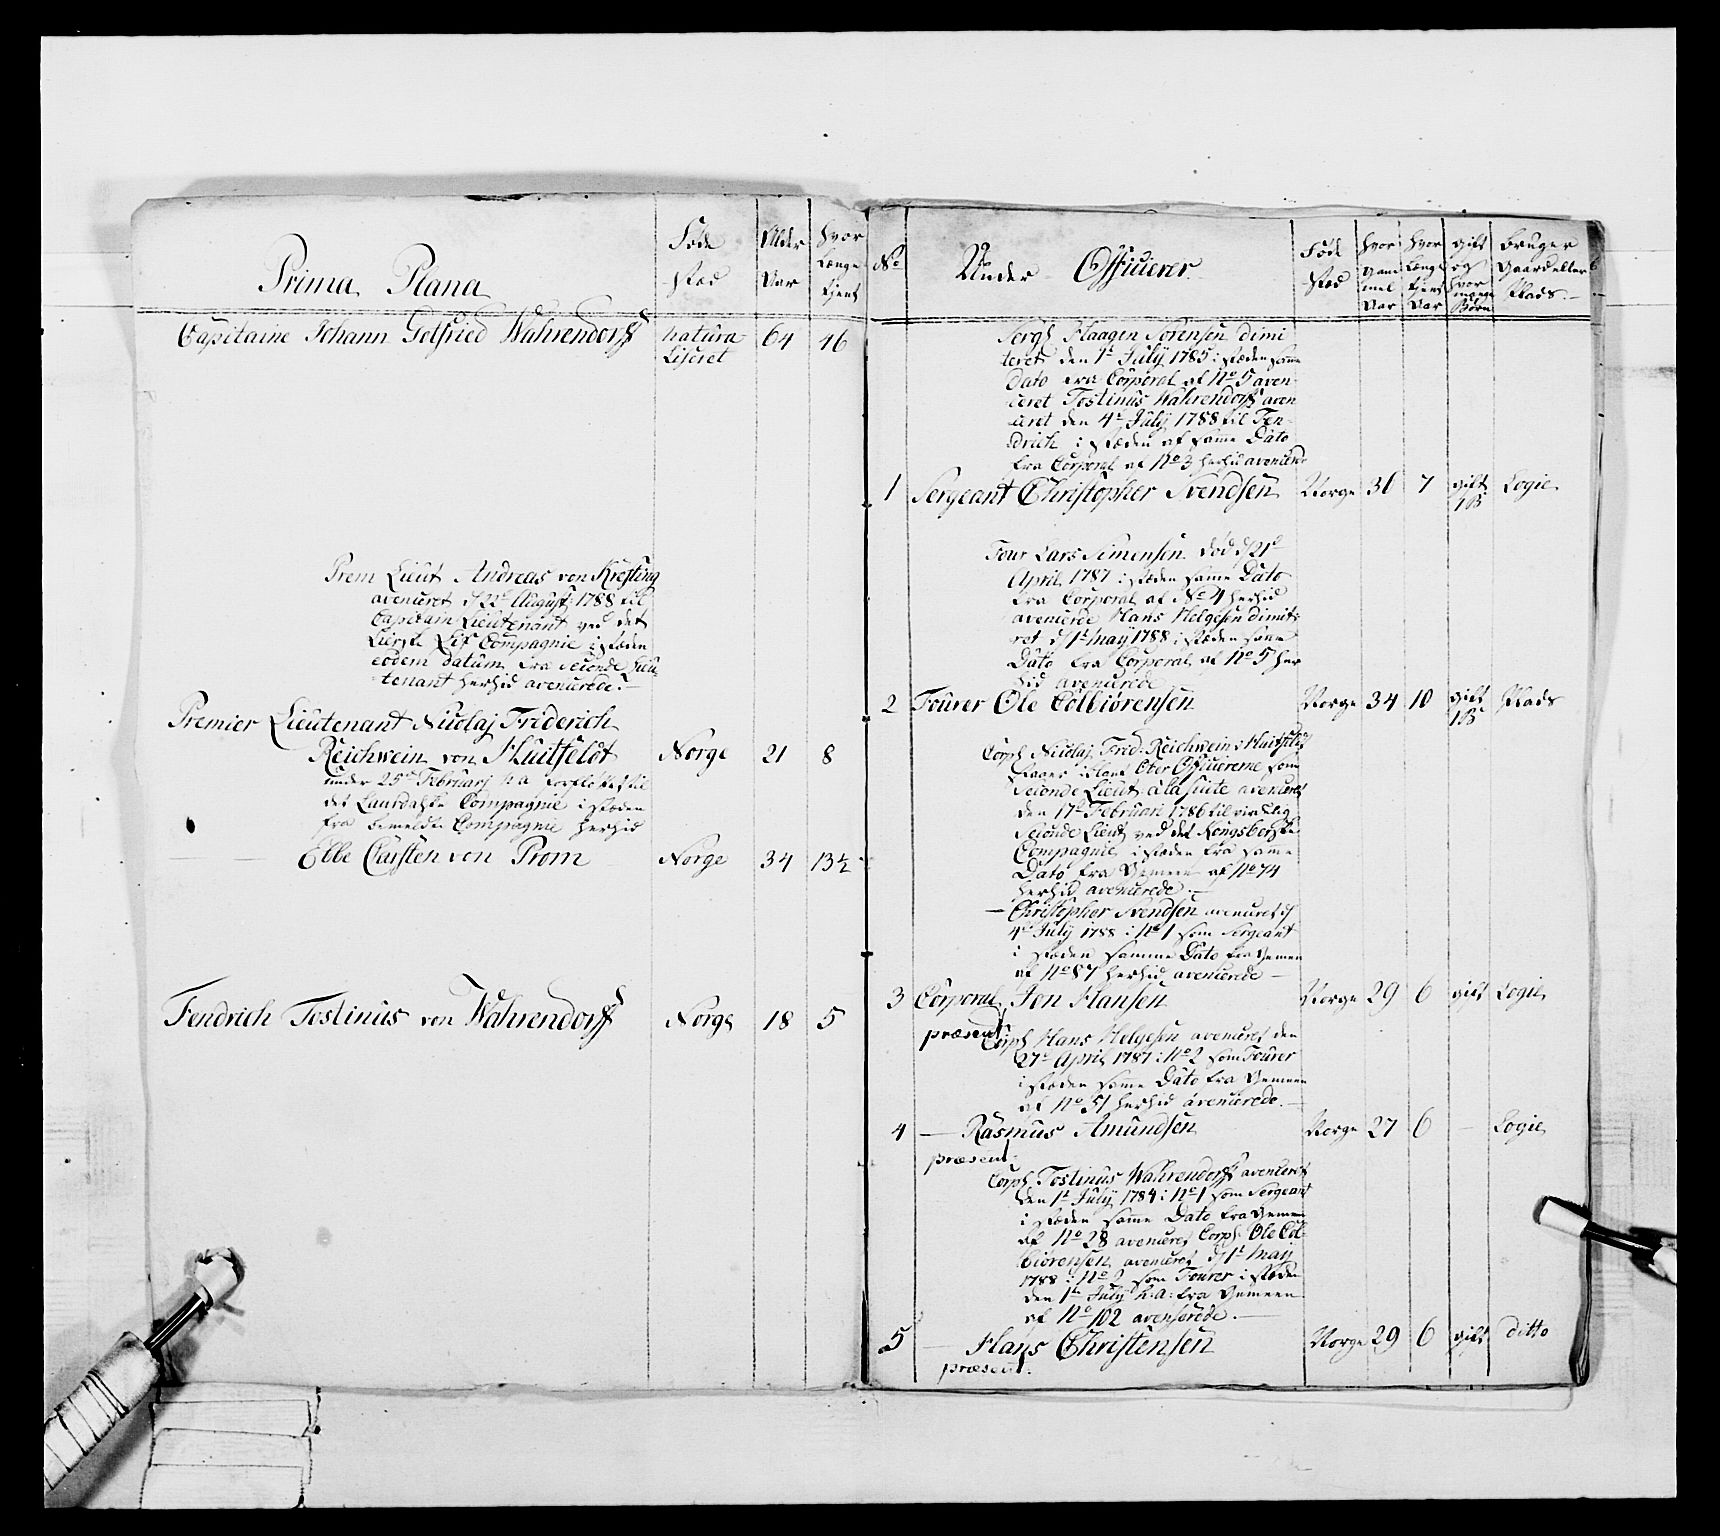 Prima Plana
Føde
stæd
Alder
Aar
hvor
Længe
tient
Capitaine Johann Gotfried Wahrendorff natura 64 46
Liseret
Prem Lieut Andreas von Kresting
avenceret d 22de August: 1788 til
Capitain Lieutenant ved det
Lierske Lif Compagnie i stæden
eodem datum fra Seconde Lieu-
tenant herhid avencerede.-
Premier Lieutenant Nicolaj Friderich
Reichwein von Huitfeldt Norge 21 8
under 25de Februarj h a forfløttet til
det Laurdahlske Compagnie i stæden
fra bemeldte Compagnie herhid
— — Ebbe Carsten von Prom Norge 34 13½
Fendrich Tostinus von Wahrendorff Norge 18 5
No
Under Officierer
Føde
stæd
hvor
gam
mel
Aar
hvor
Længe
tient
Aar
gift
og
hvor
mange
Børn
bruger
Gaard eller
Plads:-
Sergt Haagen Sørensen dimi
teret den 1te July 1785 i stæden samme
Dato fra Corporal af No 5 aven-
ceret Tostinus Wahrendorff aven
ceret den 4de July 1788 til Fen-
drich i stæden af samme Dato
fra Corporal af No 3 herhid avencerede
1 Sergeant Christopher Svendsen Norge 31 7 gift Logie
1B
Four Lars Simensen død d 21de
April 1787 i stæden samme Dato
fra Corporal af No 4 herhid
avencerede Hans Helgesen dimitte
ret d 1te May 1788 i stæden samme
Dato fra Corporal af No 5 her
hid avencerede
2 Fourer Ole Colbiørensen Norge 34 10 gift Plads
1B
Corpl Nicolaj Frid: Reichwein v Huitfeldt
staaer iblant Ober Officiererne som
Seconde Lieut: a la suite avenceret
den 17de Februari 1786 til virkelig
Seconde Lieut ved det Kongsbergske
Compagnie i stæden fra samme
Dato fra Gemeen af No 74
herhid avencerede.-
— Christopher Svendsen avenceret d
4de July 1788 i No 1 som Sergeant
i stæden samme Dato fra Gemeen
af No 87 herhid avencerede —
3 Corporal Jon Hansen Norge 29 6 gift Logie
præsent
Corpl Hans Helgesen avenceret den
27de April 1787 i No 2 som Fourer
i stæden samme Dato fra Gemeen
af No 51 herhid avencerede.-
4 — Rasmus Amundsen Norge 27 6 — Logie
præsent.
Corpl Tostinus Wahrendorff avenceret
den 1te July 1784 i No 1 som Sergeant
i stæden samme Dato fra Gemeen
af No 28 avenceret Corpl: Ole Col-
biørensen avenceret d 1te May
1788 i No 2 som Fourer i stæden
den 1te July h: a: fra Gemeen
af No 102 avencerede.-
5 — Hans Christensen Norge 29 6 gift ditto
præsent.